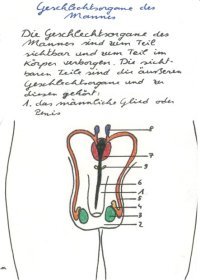 Geschlechtsorgane des
Mannes
Die Geschlechtsorgane des
Mannes sind zum Teil
sichtbar und zum Teil im
Körper verborgen. Die sicht-
baren Teile sind die äusseren
Geschlechtsorgane und zu
diesen gehört:
1. das männliche Glied oder
Penis
8
7
9
6
1
5
4
3
2